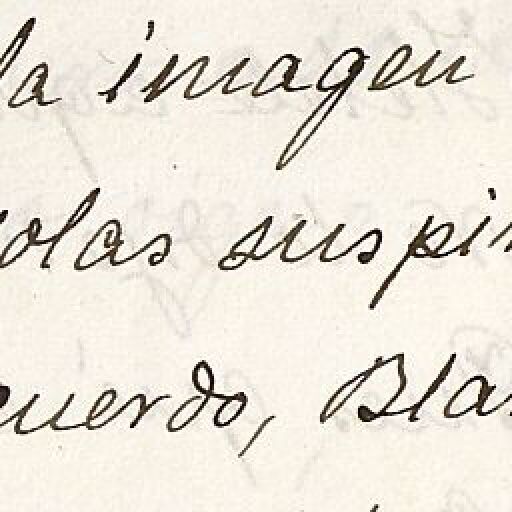 la imagen
solas suspir
cuerdo, Blan